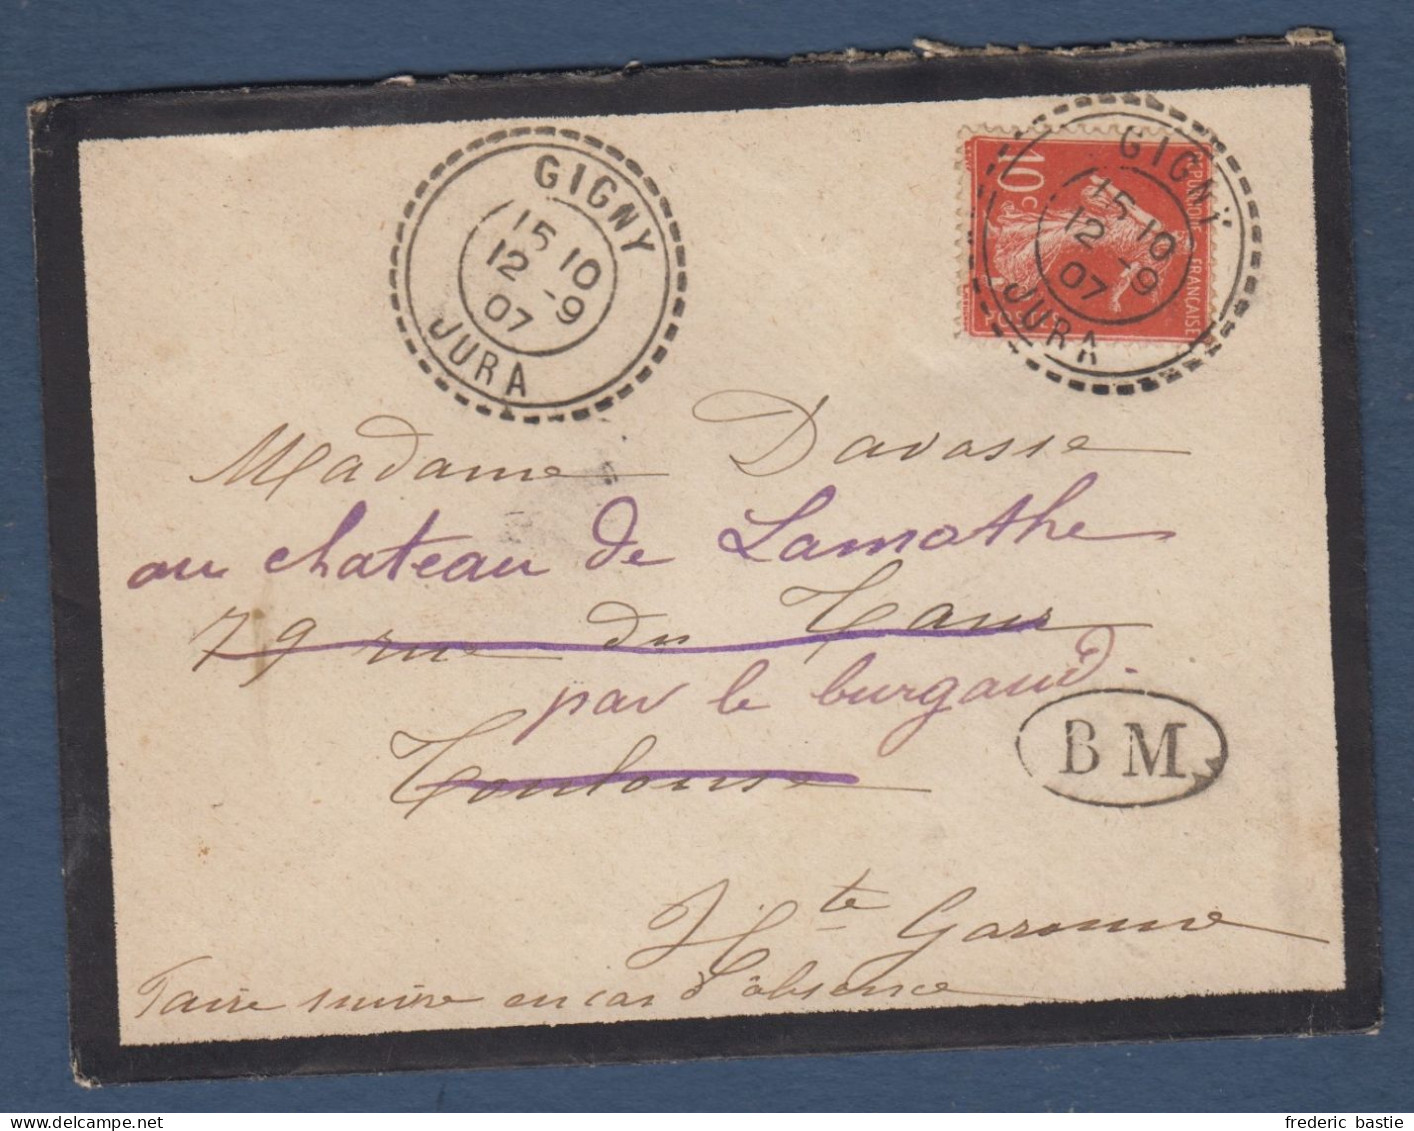 GIGNY
15 10
12 -9
07
JURA
10c
REPUBLIQUE FRANÇAISE
GIGNY
15 10
12 -9
07
JURA
Madame Davasse
au chateau de Lamothe
79 rue du Taur
par le burgaud.
Toulouse
B M
Hte Garonne
Faire suivre en cas d'absence
frederic bastie